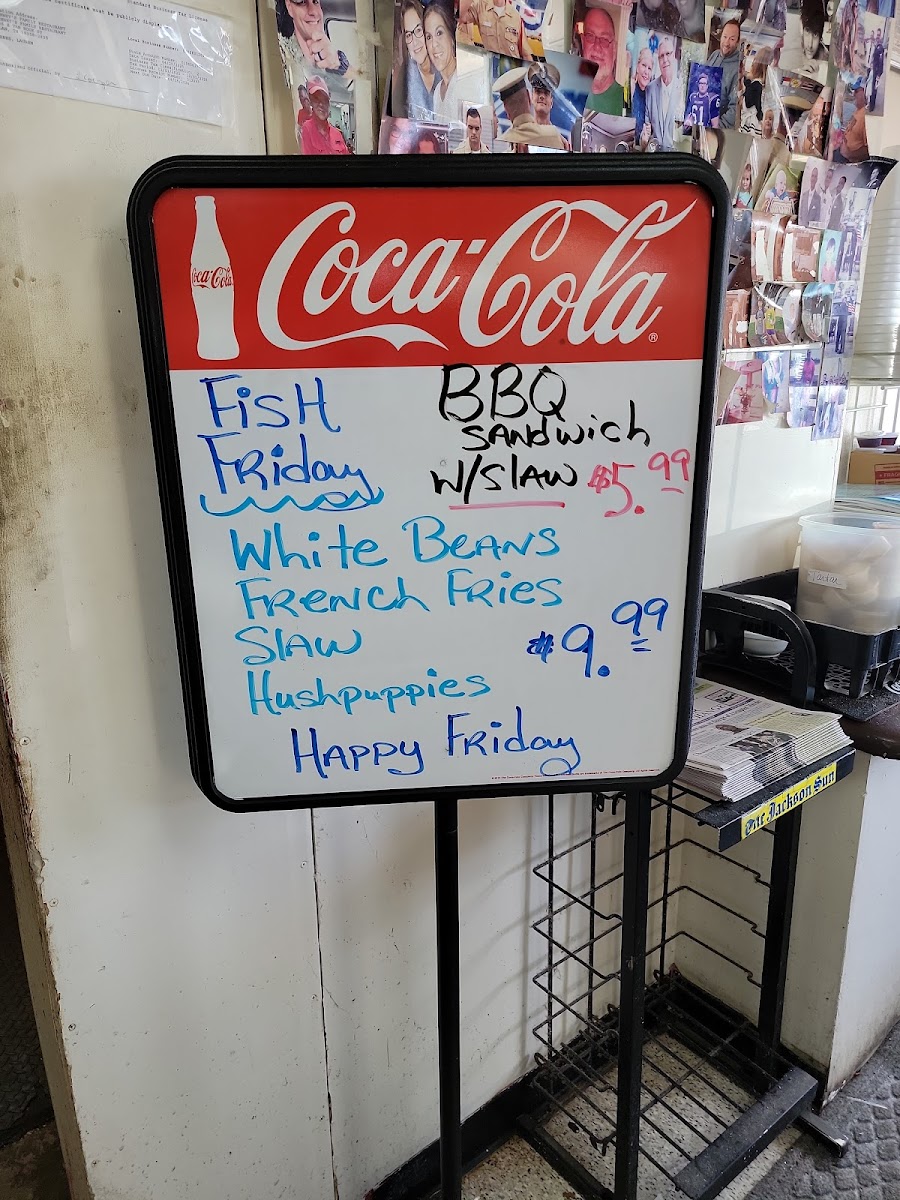 Coca-Cola
Coca-Cola®
FisH
Friday
BBQ
SANdwich
W/SlAW $5.99
White BEANS
FRENCH FRies
SlAW
$9.99
Hushpuppies
HAPPY FRiday
The Jackson Sun